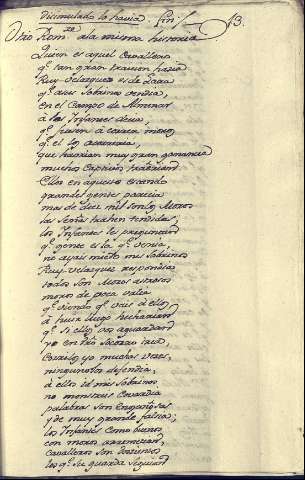 disimulado lo havia. fin
13.
Otro Rom.ze a la misma historia
Quien es aquel Cavallero
q.e tan gran traicion hacia
Ruy Velazquez es de Lara
q.e a sus Sobrinos vendia
en el Campo de Almenar
á los Infantes decia,
q.e fuesen á correr moros
q.e el lo
que havrian muy gran ganancia
muchos Captivos traherian
Ellos en aquesto estando
grandes gentes parecian
mas de diez mil son los Moros
las Señas trahen tendidas,
los Infantes le preguntan
q.e gente es la q.e venia,
no ayais miedo mis Sobrinos
Ruy Velazquez respondia
todos son Moros astrosos
moros de poca valia
q.e viendo q.e vais á ellos
á huir luego hecharian
q.e Si ellos vos aguardan
yo en v.ro Socorro iria,
Corrilos yo muchas veces,
ninguno los defendia,
á ellos id mis Sobrinos
no mostreis Covardia
palabras son Engañosas
y de muy grande falsia,
los Infantes como buenos
con moros arremetian,
Cavalleros son Doscientos
los q.e Su guarda seguian